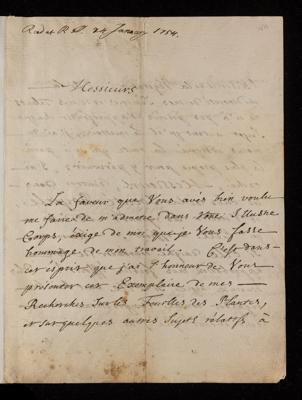 Read at R.S. 24 January 1754.
Messieurs
La faveur que Vous avés bien voulu
me faire de m'admetre dans Vôtre Illustre
Corps, éxige de moi que je Vous fasse
hommage de mon travail. C'est dans
cet esprit que j'ai l'honneur de Vous
présenter cet Exemplaire de mes
Recherches Sur les Feuilles des Plantes,
et sur quelques autres Sujets relatifs à